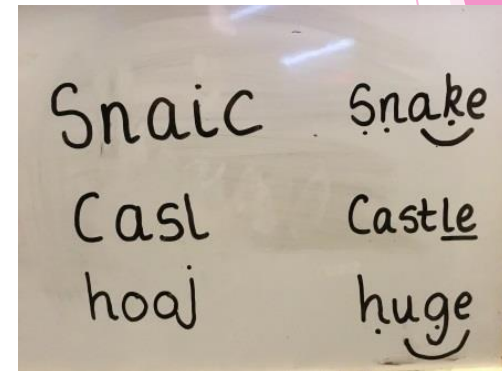 Snaic Snake
Casl Castle
hooj huge